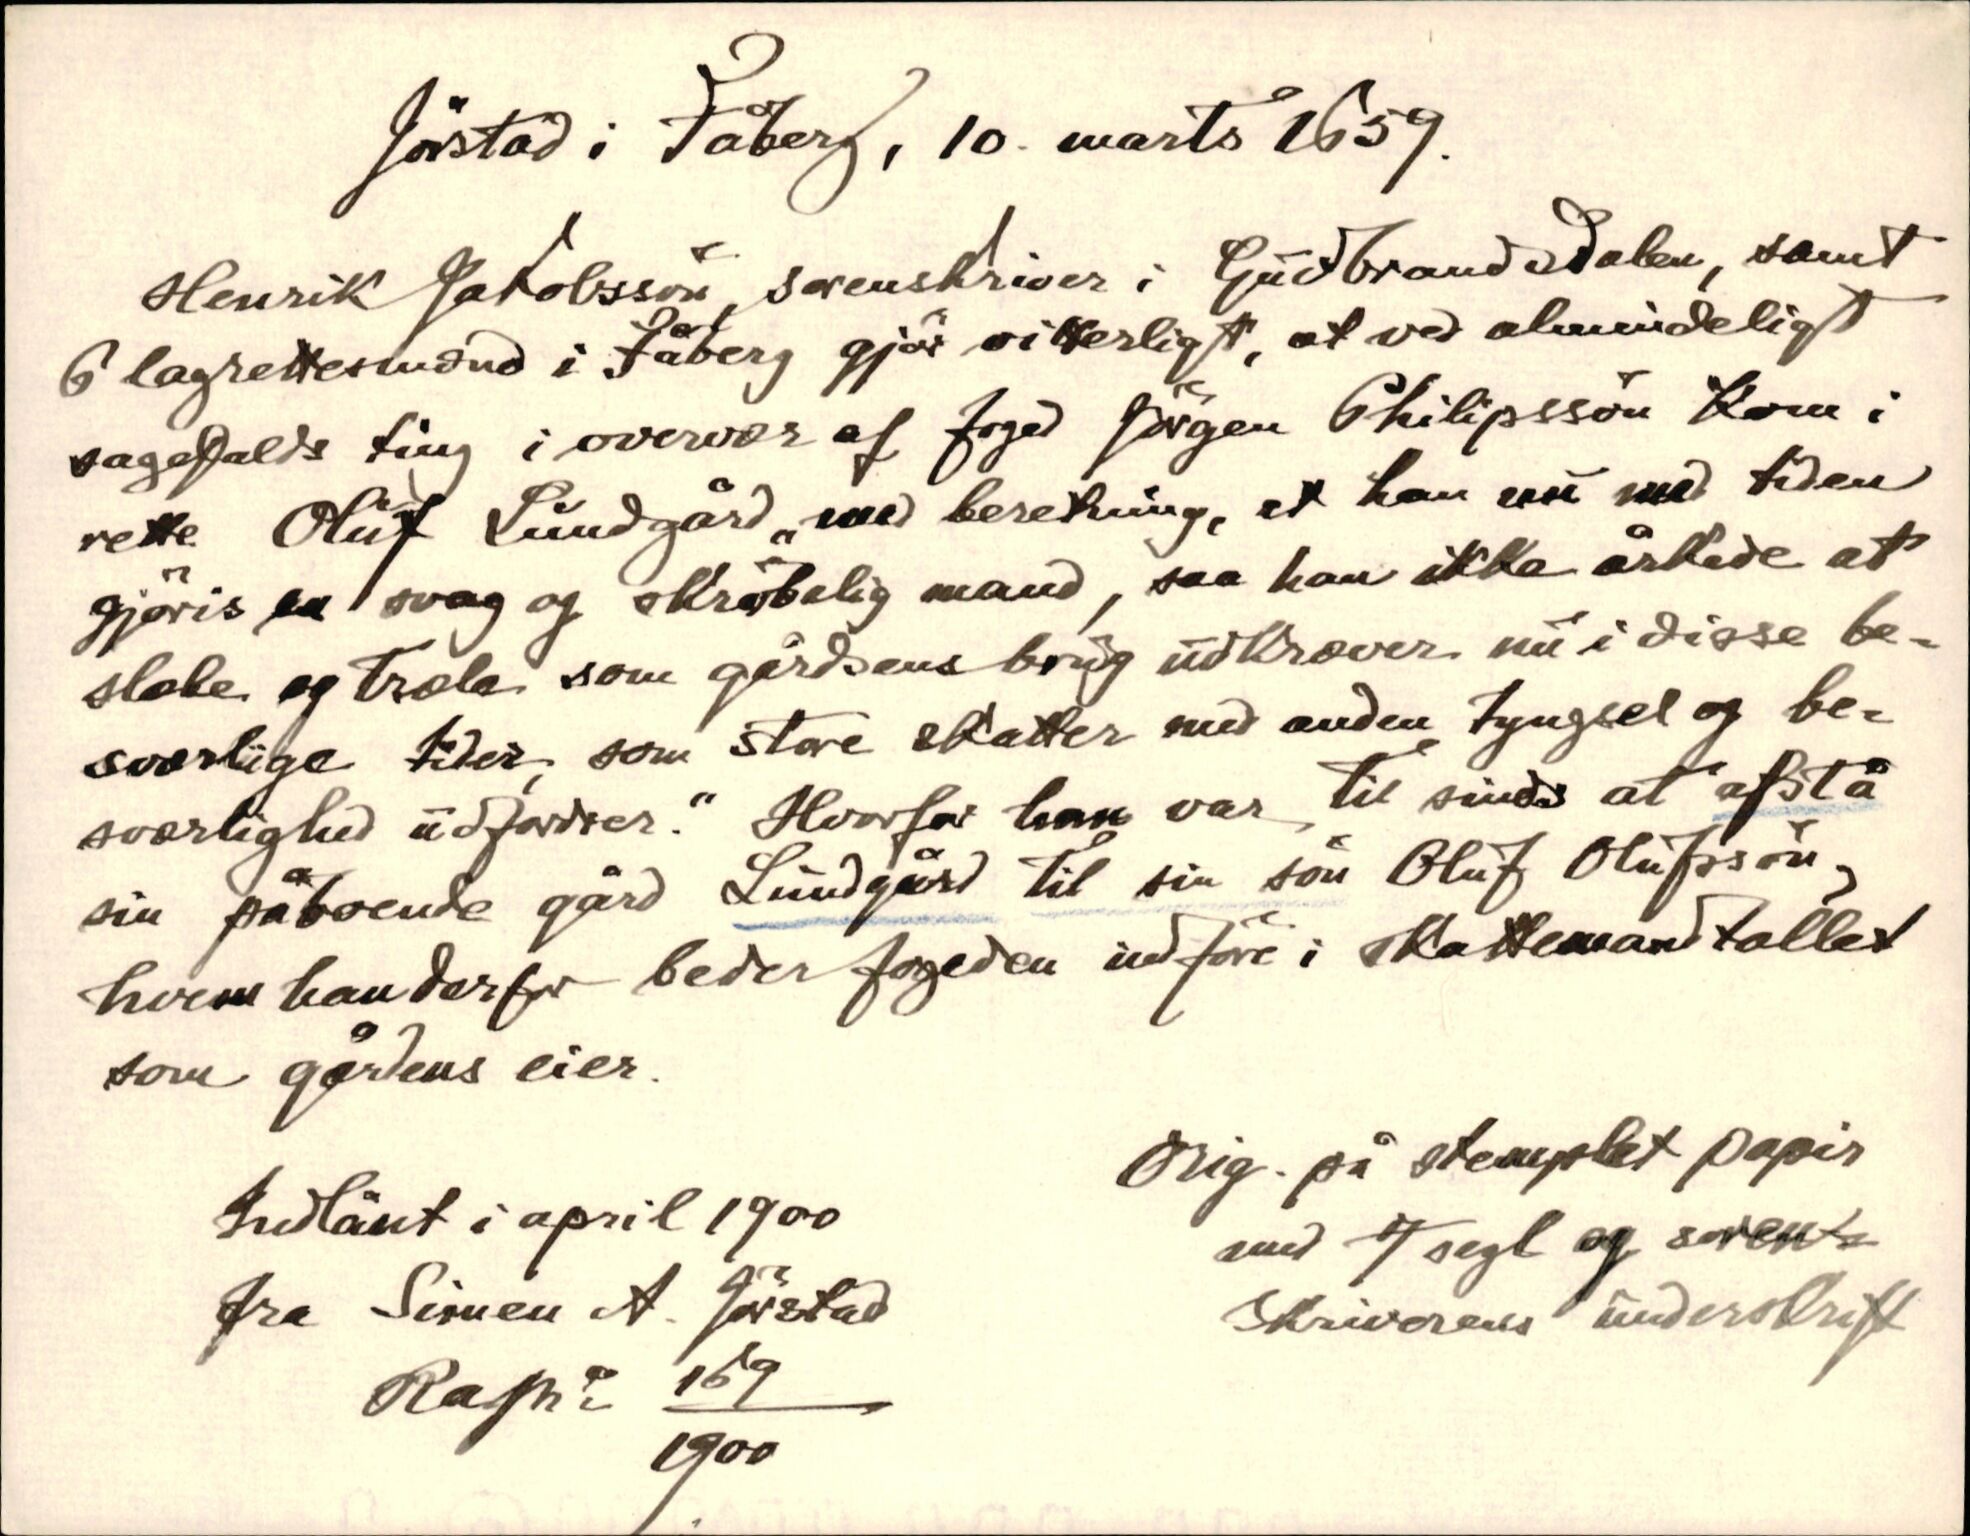 Jörstad i Fåberg, 10. marts 1659.
Henrik Jakobssön, sorenskriver i Gudbrandsdalen, samt
6 lagrettesmænd i Fåberg gjör vitterligt, at ved almindeligt
sagefalds ting i overvær af foged Jörgen Philipssön kom i
rette Oluf Lundgård „med beretning, at han nu med tiden
gjöris en svag og skröbelig mand, saa han ikke årkede at
slæbe og træle som gårdsens brug udkræver nu i disse be-
sværlige tider, som store skatter med anden tyngsel og be-
sværlighed udfordrer.“ Hvorfor han var til sinds at afstå
sin påboende gård Lundgård til sin sön Oluf Olufssön,
hvem han derfor beder fogeden indföre i skattemandtallet
som gårdens eier.
Orig. på stemplet papir
med 7 segl og soren-
skriverens underskrift
Indlånt i april 1900
fra Simen A. Jörstad
169
1900